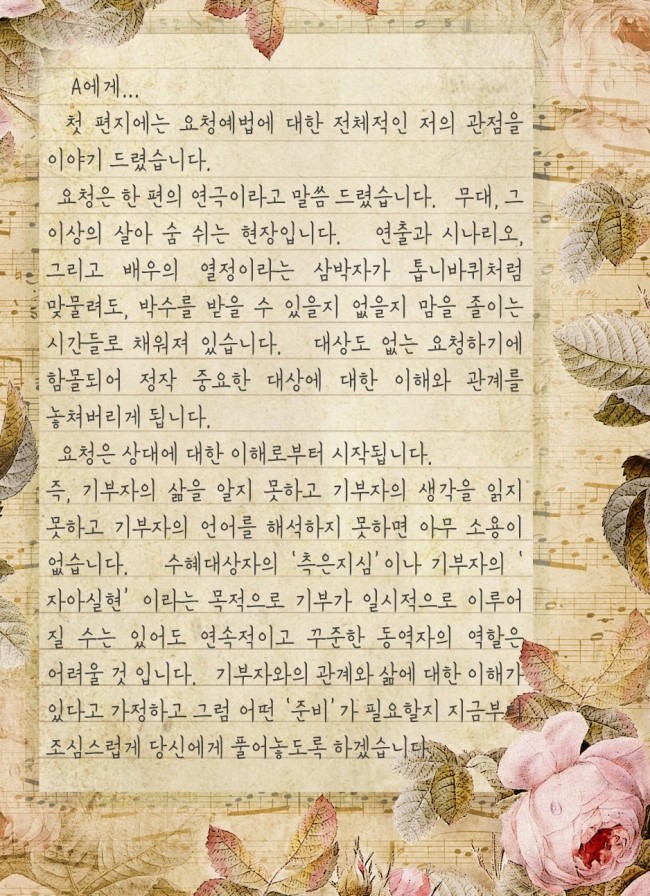 A에게...
첫 편지에는 요청예법에 대한 전체적인 저의 관점을
이야기 드렸습니다.
요청은 한 편의 연극이라고 말씀 드렸습니다. 무대, 그
이상의 살아 숨 쉬는 현장입니다. 연출과 시나리오,
그리고 배우의 열정이라는 삼박자가 톱니바퀴처럼
맞물려도, 박수를 받을 수 있을지 없을지 맘을 졸이는
시간들로 채워져 있습니다. 대상도 없는 요청하기에
함몰되어 정작 중요한 대상에 대한 이해와 관계를
놓쳐버리게 됩니다.
요청은 상대에 대한 이해로부터 시작됩니다.
즉, 기부자의 삶을 알지 못하고 기부자의 생각을 읽지
못하고 기부자의 언어를 해석하지 못하면 아무 소용이
없습니다. 수혜대상자의 '측은지심'이나 기부자의 '
자아실현' 이라는 목적으로 기부가 일시적으로 이루어
질 수는 있어도 연속적이고 꾸준한 동역자의 역할은
어려울 것 입니다. 기부자와의 관계와 삶에 대한 이해가
있다고 가정하고 그럼 어떤 '준비'가 필요할지 지금부터
조심스럽게 당신에게 풀어놓도록 하겠습니다.